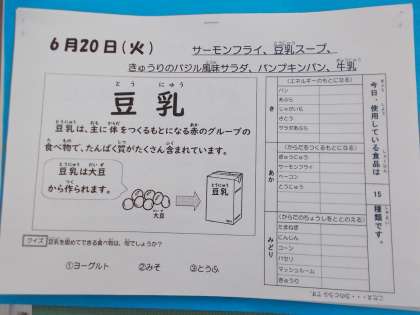 6月20日(火)
サーモンフライ、豆乳スープ、
きゅうりのバジル風味サラダ、パンプキンパン、牛乳
とう にゅう
豆乳
豆乳は、主に体をつくるもとになる赤のグループの
食べ物で、たんぱく質がたくさん含まれています。
豆乳は大豆
から作られます。
大豆
豆乳
クイズ 豆乳を固めてできる食べ物は、何でしょうか?
①ヨーグルト ②みそ ③とうふ
き
(エネルギーのもとになる)
パン
あぶら
じゃがいも
さとう
サラダあぶら
あか
(からだをつくるもとになる)
ぎゅうにゅう
サーモンフライ
ベーコン
とうにゅう
みどり
(からだのちょうしをととのえる)
たまねぎ
にんじん
コーン
パセリ
マッシュルーム
きゅうり
今日、使用している食品は
15
種類です。